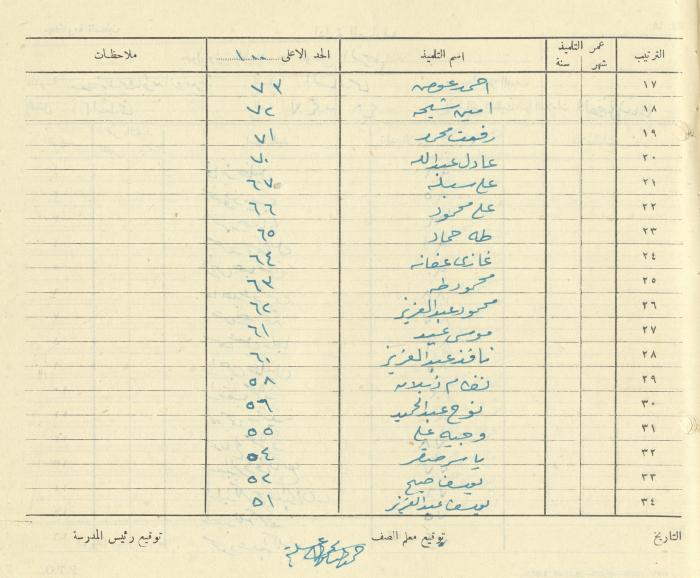 الترتيب عمر التلميذ شهر سنة اسم التلميذ الحد الاعلى ١٠٠ ملاحظات
١٧ احمد عوض ٧٣
١٨ امين شيحه ٧٢
١٩ رفعت محمد ٧١
٢٠ عادل عبدالله ٧٠
٢١ علي ٦٧
٢٢ علي محمود ٦٦
٢٣ طه حماد ٦٥
٢٤ غازي عفانه ٦٤
٢٥ محمود طه ٦٣
٢٦ محمود عبدالعزيز ٦٢
٢٧ موسى عيد ٦١
٢٨ نافذ عبدالعزيز ٦٠
٢٩ نظام ٥٨
٣٠ نوح عبدالحميد ٥٦
٣١ وجيه علي ٥٥
٣٢ ياسر صقر ٥٤
٣٣ يوسف صبح ٥٢
٣٤ يوسف عبدالعزيز ٥١
التاريخ توقيع معلم الصف توقيع رئيس المدرسة